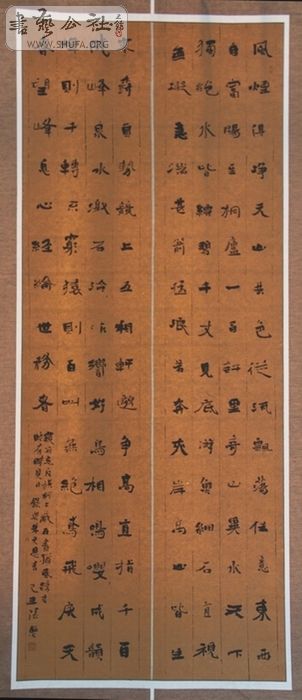 書藝公社
WWW.SHUFA.ORG
風煙俱净天山共色從流飄蕩任意東西
自富陽至桐廬一百許里奇山異水天下
獨絶水皆縹碧千丈見底游魚細石直視
無礙急湍甚箭猛浪若奔夾岸高山皆生
寒樹負勢競上互相軒邈争高直指千百
成峰泉水激石泠泠作響好鳥相鳴嚶嚶成韻
蟬則千轉不窮猿則百叫無絶鳶飛戾天
者望峰息心經綸世務者